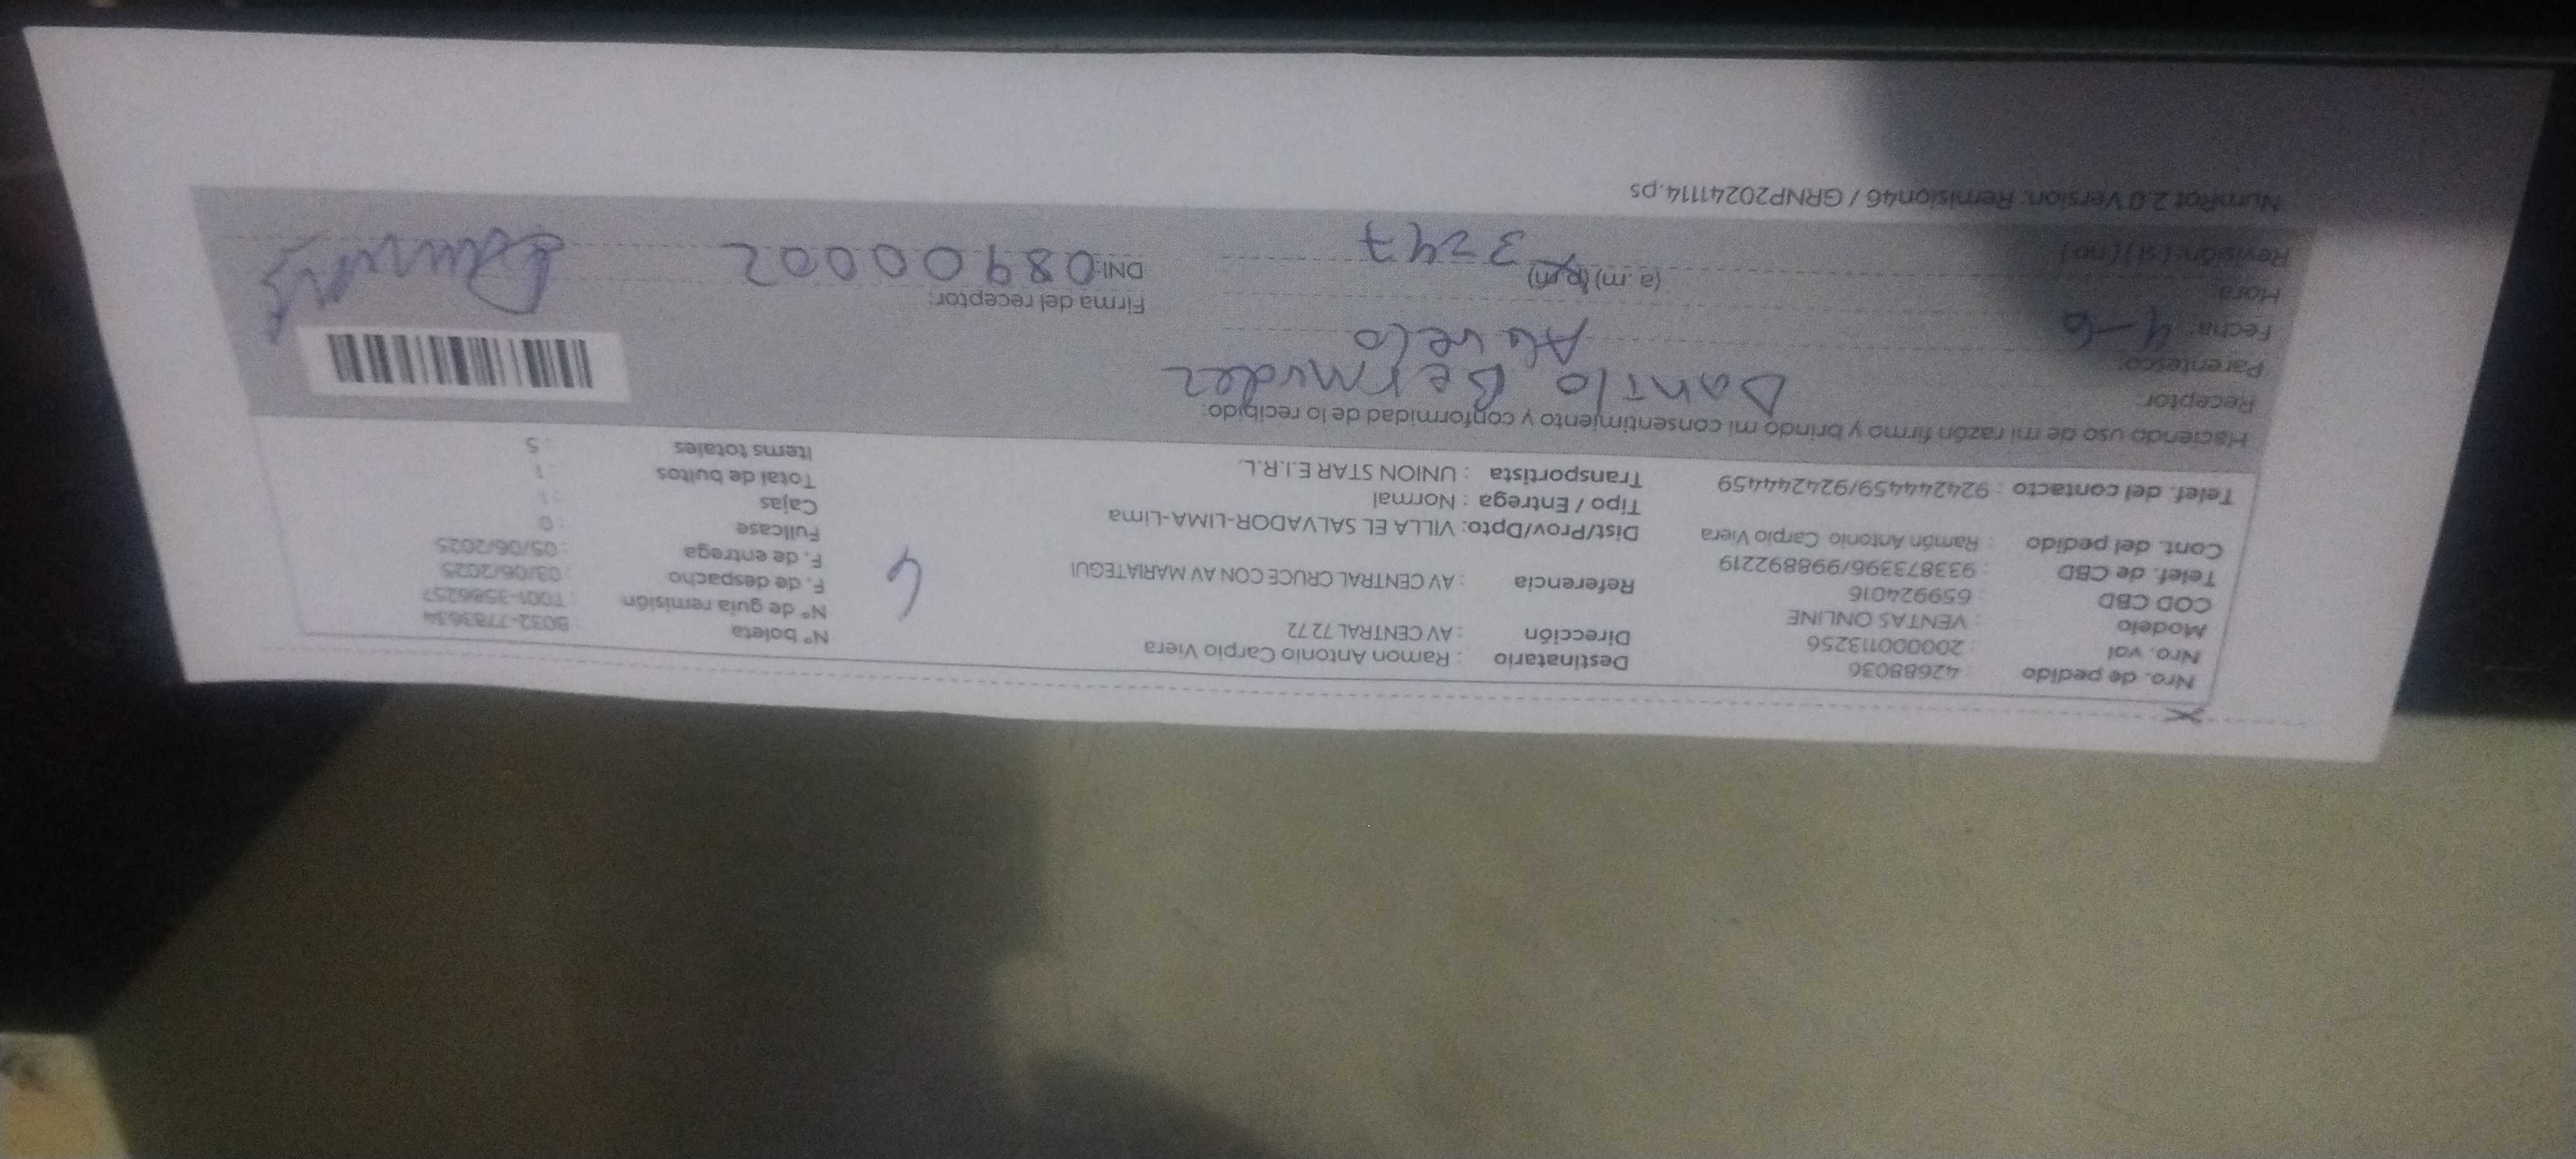 Nro. de pedido : 42688036
Nro. vol : 200000113256
Modelo : VENTAS ONLINE
COD CBD : 659924016
Telef. de CBD : 933873396/998892219
Cont. del pedido : Ramón Antonio Carpio Viera
Telef. del contacto : 924244459/924244459
Destinatario : Ramon Antonio Carpio Viera
Dirección : AV CENTRAL 7272
Referencia : AV CENTRAL CRUCE CON AV MARIATEGUI
Dist/Prov/Dpto: VILLA EL SALVADOR-LIMA-Lima
Tipo / Entrega : Normal
Transportista : UNION STAR E.I.R.L.
N° boleta : B032-7783634
N° de guía remisión : T001-3586257
F. de despacho : 03/06/2025
F. de entrega : 05/06/2025
Fullcase : 0
Cajas : 1
Total de bultos : 1
Items totales : 5
4
Haciendo uso de mi razón firmo y brindo mi consentimiento y conformidad de lo recibido:
Receptor: Danilo Bermudez
Parentesco: Abuelo
Fecha: 4-6
Hora: (a.m) (p.m)
Revisión: (si) (no) 3247
Firma del receptor:
DNI: 08900002
NumRot 2.0 Version: Remision46 / GRNP20241114.ps